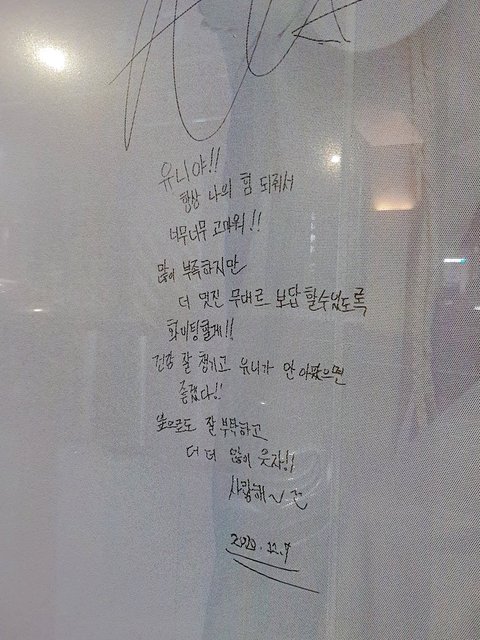 유니야!!
항상 나의 힘 되줘서
너무너무 고마워!!
많이 부족하지만
더 멋진 무대로 보답 할수있도록
화이팅할게!!
건강 잘 챙기고 유니가 안 아팠으면
좋겠다!!
앞으로도 잘 부탁하고
더 더 많이 웃자!!
사랑해~
2020. 12. 7